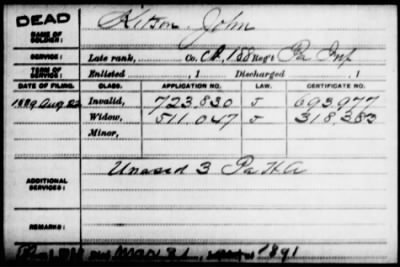 DEAD
NAME OF SOLDIER: Kitson, John
SERVICE: Late rank, Co. 188 Reg't Pa Inf
TERM OF SERVICE: Enlisted , 1 Discharged , 1
DATE OF FILING. CLASS. APPLICATION NO. LAW. CERTIFICATE NO.
1889 Aug Invalid, 723.830 J 693,977
Widow, 511.047 J 318,383
Minor,
ADDITIONAL SERVICES: Unasd 3 Pa H A
REMARKS:
1891